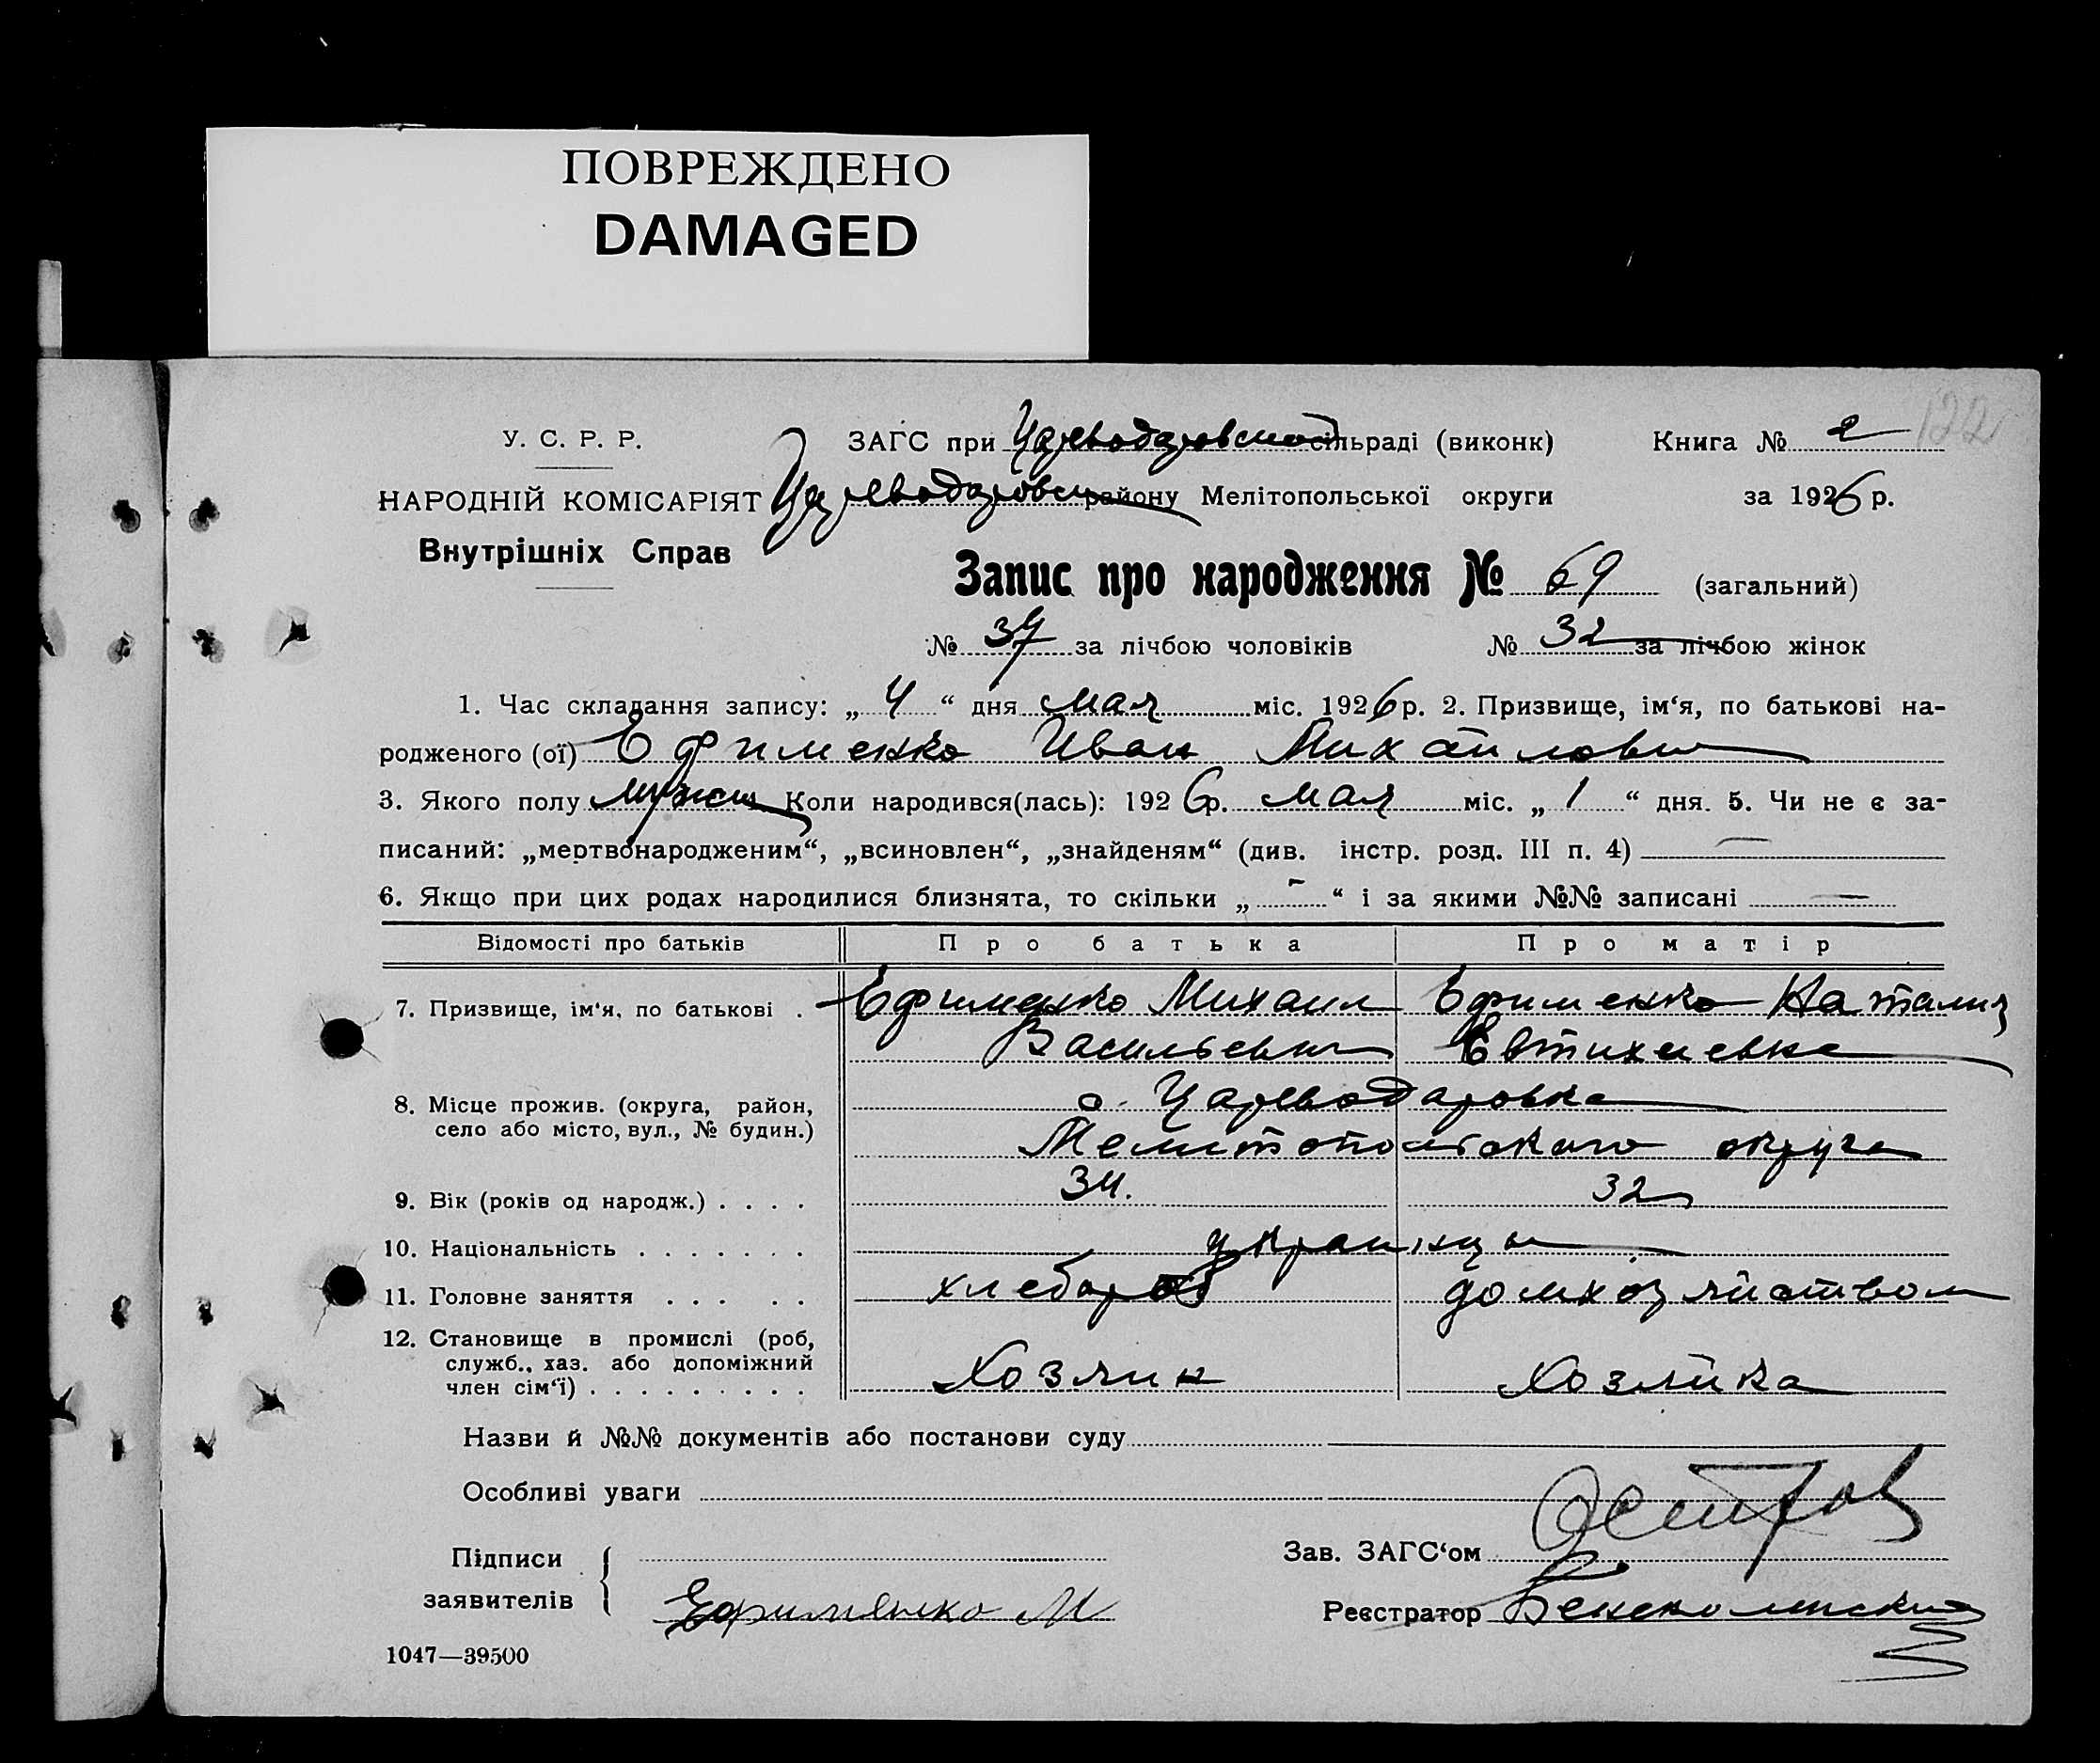 ПОВРЕЖДЕНО
DAMAGED
122
У. С. Р. Р.
ЗАГС при Цареводаровской сільраді (виконк) Книга № 2
НАРОДНІЙ КОМІСАРІЯТ Цареводаровск району Мелітопольської округи за 1926 р.
Внутрішніх Справ
Запис про народження № 69 (загальний)
№ 37 за лічбою чоловіків № 32 за лічбою жінок
1. Час складання запису: „ 4 “ дня мая міс. 1926 р. 2. Призвище, ім‘я, по батькові на-
родженого (ої) Ефименко Иван Михайлович
3. Якого полу мужск Коли народився(лась): 1926 р. мая міс. „ 1 “ дня. 5. Чи не є за-
писаний: „мертвонародженим“, „всиновлен“, „знайденям“ (див. інстр. розд. III п. 4) —
6. Якщо при цих родах народилися близнята, то скільки „ - “ і за якими №№ записані —
Відомості про батьків Про батька Про матір
7. Призвище, ім‘я, по батькові . Ефименко Михаил Ефименко Наталия
Васильевич Евтихиевна
8. Місце прожив. (округа, район, с. Цареводаровка
село або місто, вул., № будин.) Мелитопольского округа
9. Вік (років од народж.) . . . . 34. 32
10. Національність . . . . . . . украинцы
11. Головне заняття . . . . . хлебороб домхозяйством
12. Становище в промислі (роб,
служб., хаз. або допоміжний
член сім‘ї) . . . . . . . . . Хозяин Хозяйка
Назви й №№ документів або постанови суду
Особливі уваги
Підписи
Зав. ЗАГС‘ом
заявителів Ефименко М
Реєстратор
1047—39500